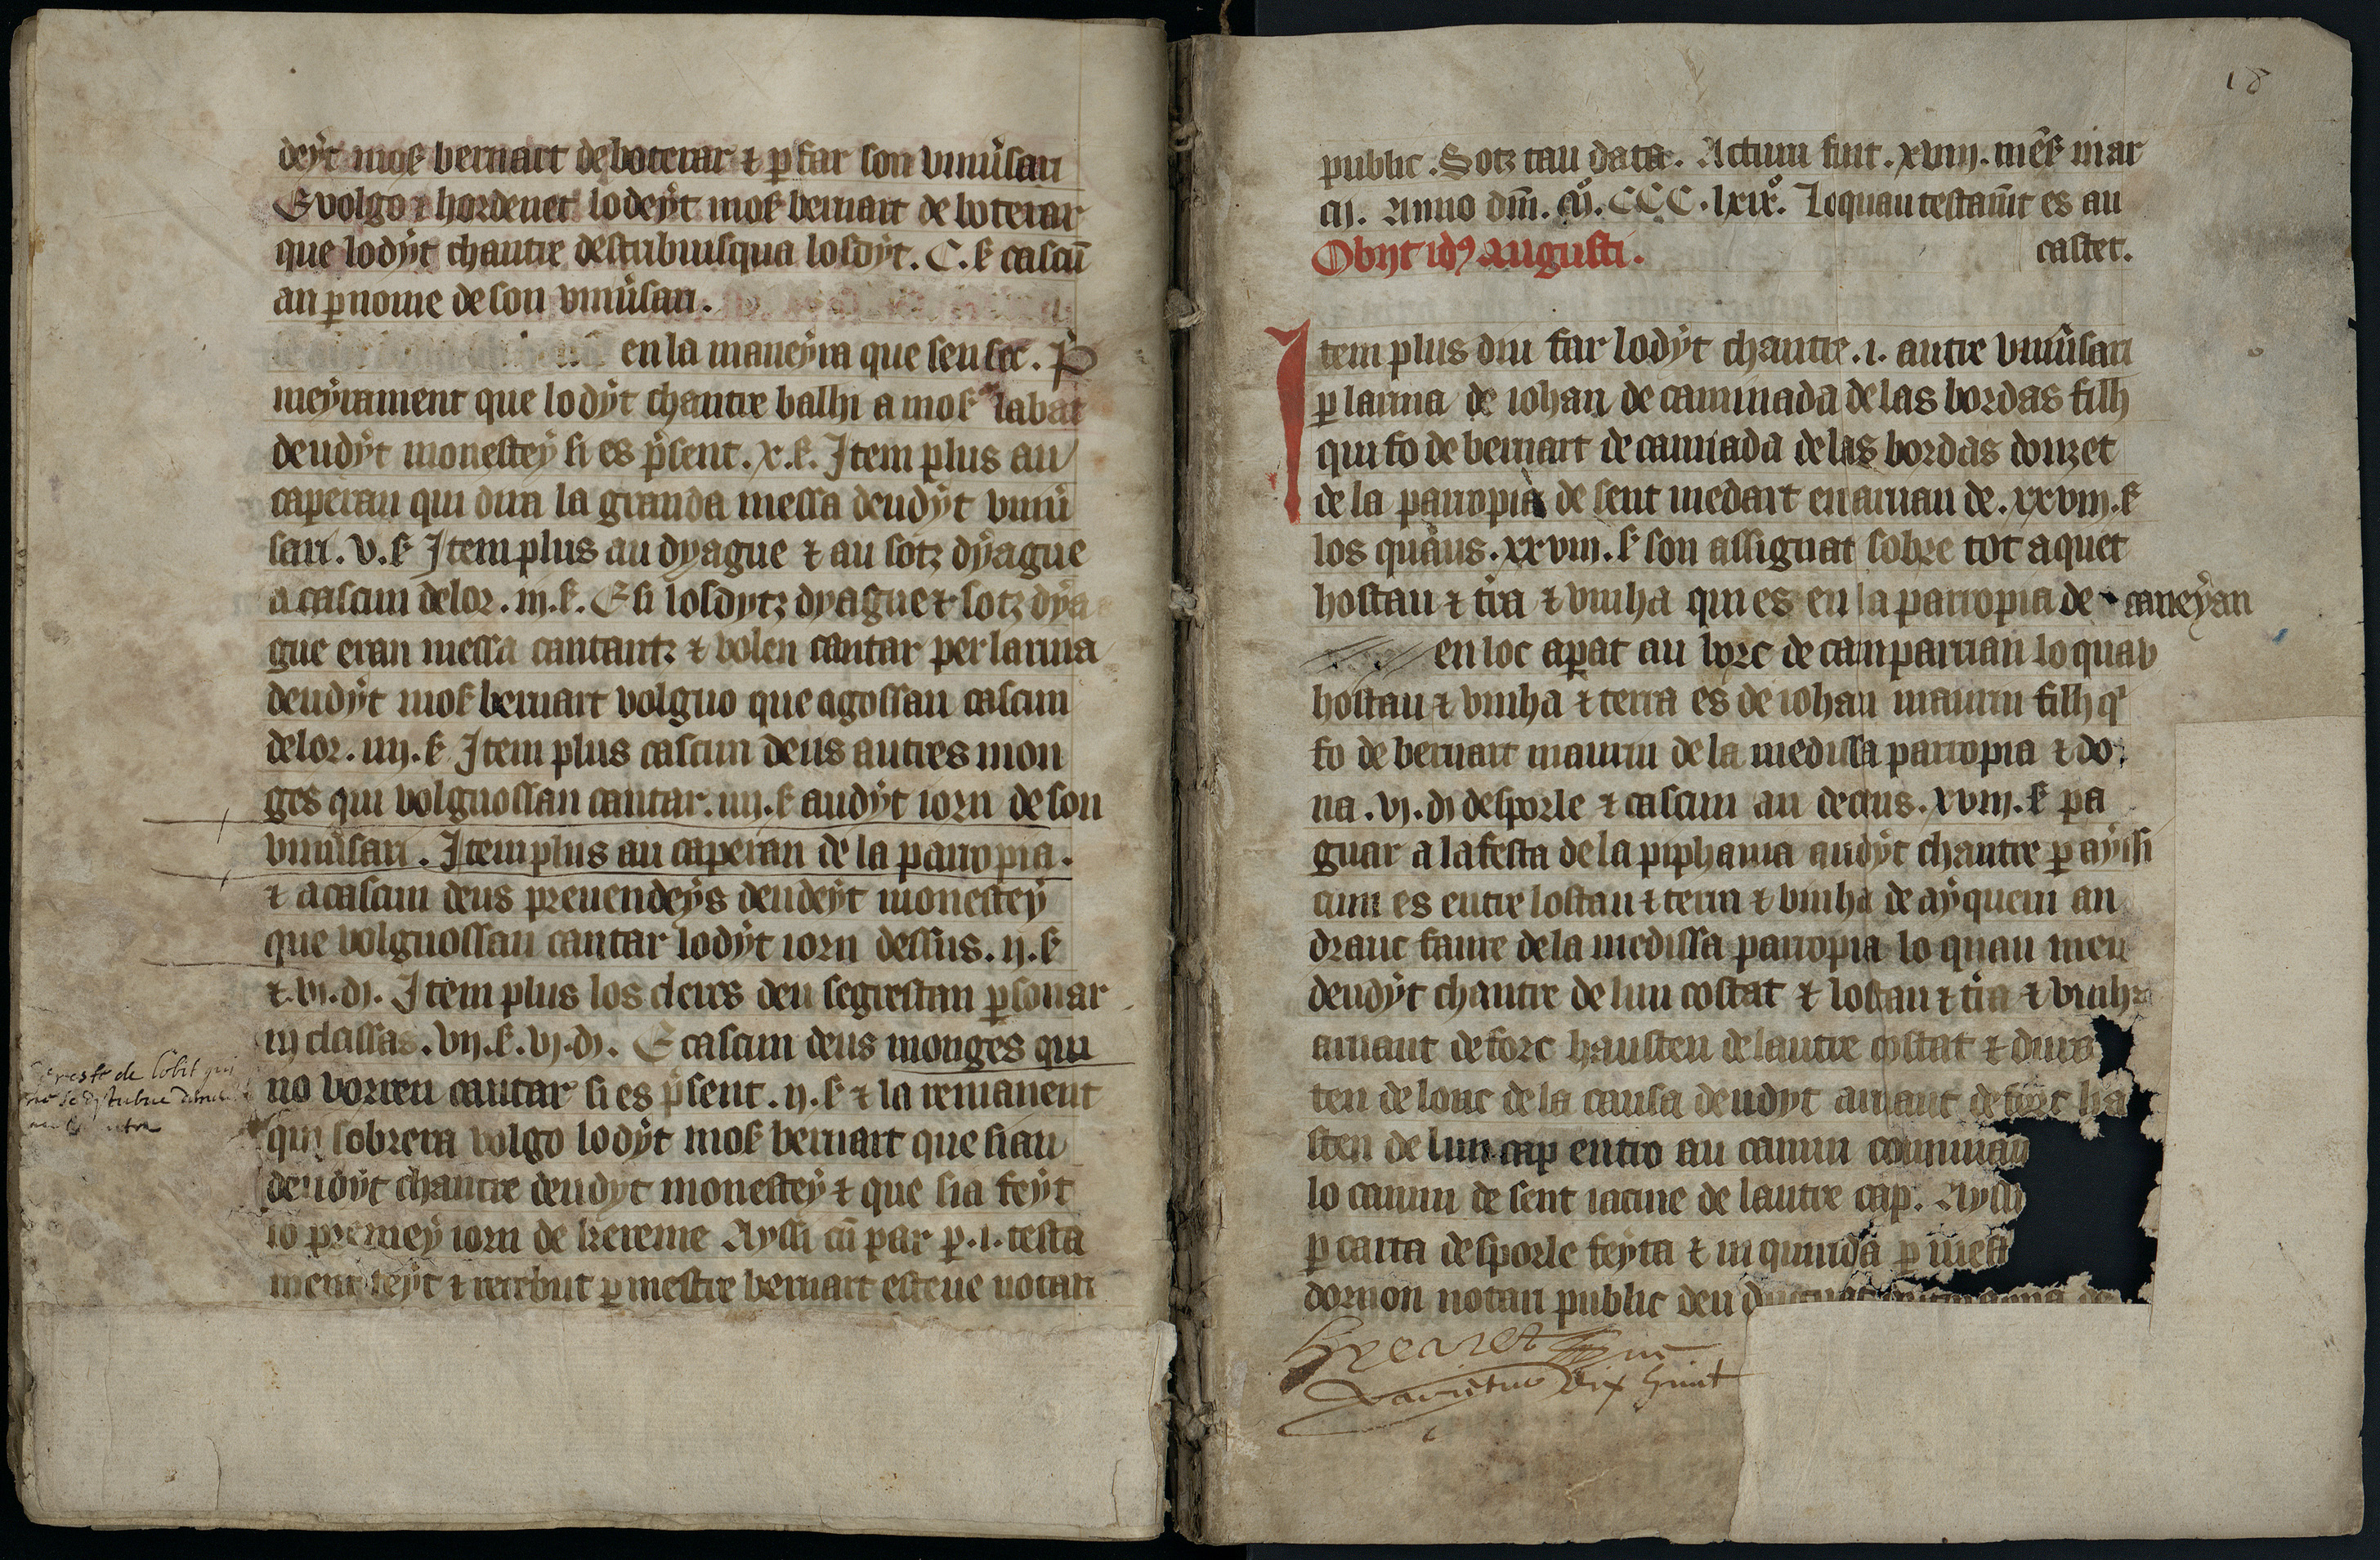 deyt mos bernart de boterar ⁊ p far son viniusari
E volgo ⁊ hordenet lo deyt mos bernart de boterar
que lodyt chantre destribuisqua losdyt. C. s cascū
an p nome de son viniusari.
en la maneyra que sensec. P
meyrament que lodyt chantre balhi a mos labat
deudyt monestey si es psent. x. s. Item plus au
caperan qui dira la granda messa deudyt viniu
sari. v. s Item plus au dyague ⁊ au sotz dyague
a cascun delor. iij. s. E si losdytz dyague ⁊ sotz dya
gue eran messa cantantz ⁊ volen cantar per larma
deudyt mos bernart volguo que agossan cascun
delor. iiij. s Item plus cascun deus autres mon
ges qui volguossan cantar. iiij. s audyt iorn de son
viniusari. Item plus au caperan de la parropia.
⁊ a cascun deus prevendeys deudeyt monestey
que volguossan cantar lodyt iorn dessus. ij. s
⁊. vj. dj. Item plus los clercs deu segrestan p sonar
iij classas. vij. s. vj. dj. E cascun deus monges qui
no vorren cantar si es psent. ij. s ⁊ la remanent
qui sobrera volgo lodyt mos bernart que siau
deudyt chantre deudyt monestey ⁊ que sia feyt
lo premey iorn de kereme Ayssi cū par p. i. testa
ment feyt ⁊ recebut p mestre bernart esteue notari
reste de lobit qui
18
public. Sotz tau data. Actum fuit. xviij. mēs mar
cij. Anno dm̄. mº. CCC. lxixº. Loquau testamt es au
Obijt idus augusti. castet.
Item plus diu far lodyt chantre. i. autre viniusari
p larma de iohan de caminada de las bordas filh
qui fo de bernart de camiada de las bordas donzet
de la parropia de sent medart en arruan de. xxviij. s
los quaus. xxviij. s son assignat sobre tot aquet
hostau ⁊ tra ⁊ vinha qui es en la parropia de caneyan
en loc aperat au borc de camparrian lo quau
hostau ⁊ vinha ⁊ terra es de iohan maurin filh qi
fo de bernart maurin de la medissa parropia ⁊ do
na. vj. dj desporle ⁊ cascun an decens. xviij. s pa
guar a la festa de la piphania audyt chantre p ayssi
cum es entre lostau ⁊ terra ⁊ vinha de ayquem an
drauc faure de la medissa parropia lo quau meu
deudyt chantre de lun costat ⁊ lostau ⁊ tra ⁊ vinha
arnaut de forc hausten de lautre costat ⁊ dura
ten de lonc de la causa deudyt arnaut de forc ha
sten de lun cap entro au camin comunau
lo camin de sent iacme de lautre cap. Ayssi
p carta desporle feyta ⁊ inquirida p mest
dornon notari public deu
dix huict